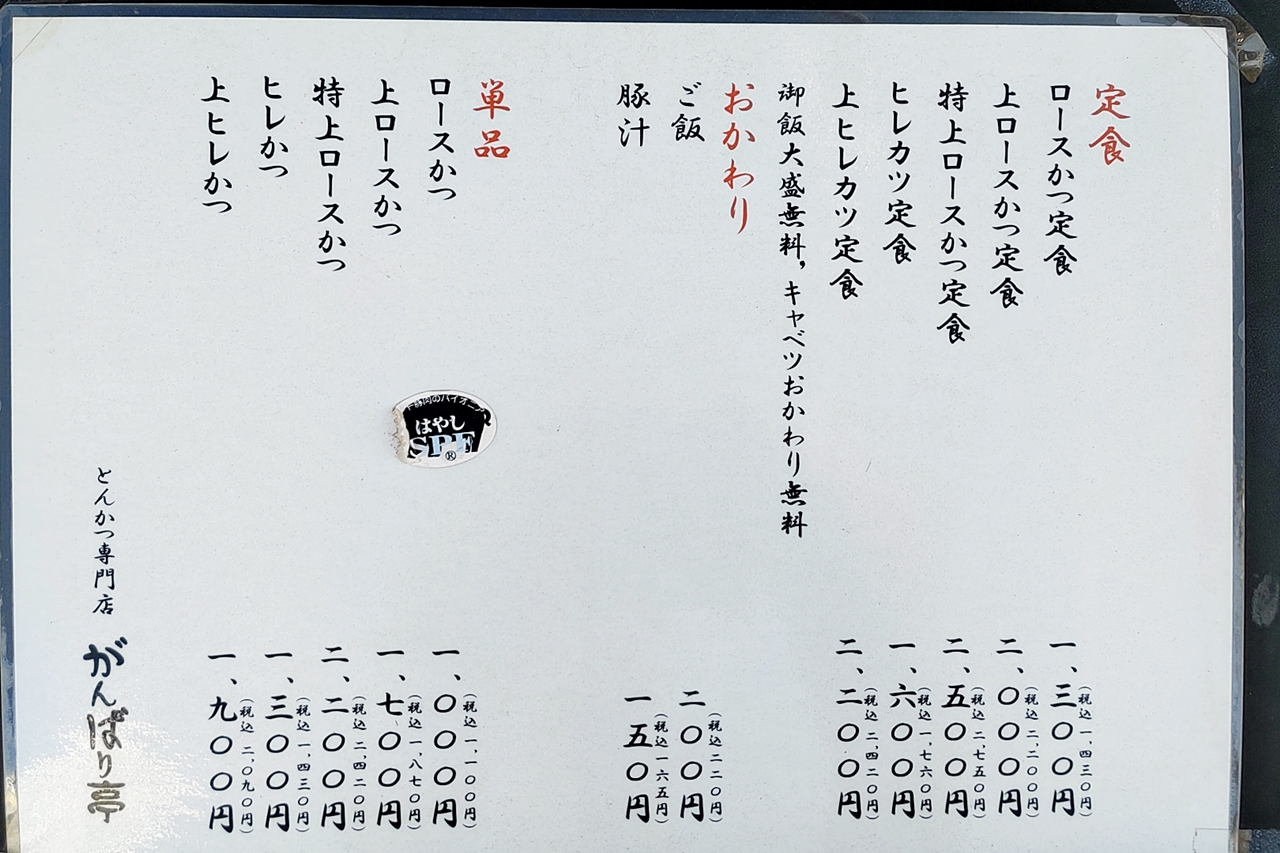 定食
ロースかつ定食 一、三〇〇円
(税込 一、四三〇円)
上ロースかつ定食 二、〇〇〇円
(税込 二、二〇〇円)
特上ロースかつ定食 二、五〇〇円
(税込 二、七五〇円)
ヒレカツ定食 一、六〇〇円
(税込 一、七六〇円)
上ヒレカツ定食 二、二〇〇円
(税込 二、四二〇円)
御飯大盛無料，キャベツおかわり無料
おかわり
ご飯 二〇〇円
(税込 二二〇円)
豚汁 一五〇円
(税込 一六五円)
単品
ロースかつ 一、〇〇〇円
(税込 一、一〇〇円)
上ロースかつ 一、七〇〇円
(税込 一、八七〇円)
特上ロースかつ 二、二〇〇円
(税込 二、四二〇円)
ヒレかつ 一、三〇〇円
(税込 一、四三〇円)
上ヒレかつ 一、九〇〇円
(税込 二、〇九〇円)
はやし
SPF
®
とんかつ専門店 がんばり亭